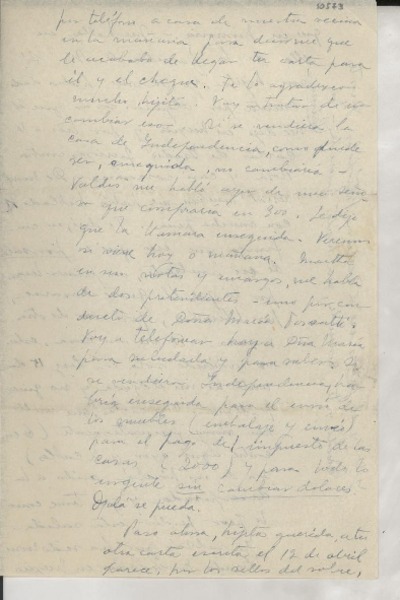 10573
por teléfono a casa de nuestra vecina
en la mañana para decirme que
le acababa de llegar tu carta para
él y el cheque. Te lo agradezco
mucho, hijita. Voy a tratar de no
cambiar eso. Si se vendiera la
casa de Independencia, como puede
ser, enseguida, no cambiaría.
Valdés me habló ayer de una
que compraría en 300. Le dije
que la llamara enseguida. Veremos
si viene hoy o mañana. Martha
en sus notas y encargos, me habla
de dos pretendientes - uno por con-
ducto de Doña María
Voy a telefonear luego a Doña María
para saludarla y para saber. Si
se vendiera Independencia, ha-
bría enseguida para el envío de
los muebles (embalaje y envío)
para el pago del impuesto de las
casas (2000) y para todo lo
urgente sin cambiar dólares.
Ojalá se pueda.
Paso ahora, hijita querida, a tu
otra carta escrita el 12 de abril
parece, por los sellos del sobre,